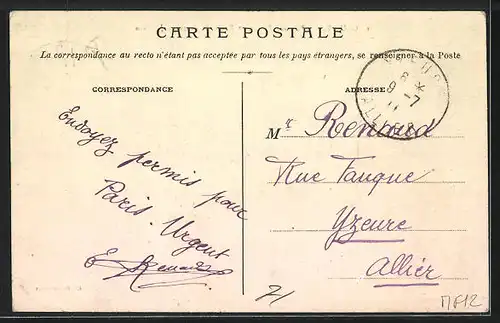 CARTE POSTALE
La correspondance au recto n'étant pas acceptée par tous les pays étrangers, se renseigner à la Poste
CORRESPONDANCE
Envoyez permis pour
Paris. Urgent
E Renaud
ADRESSE
Mr Renaud
Rue Tauque
Yzeure
Allier